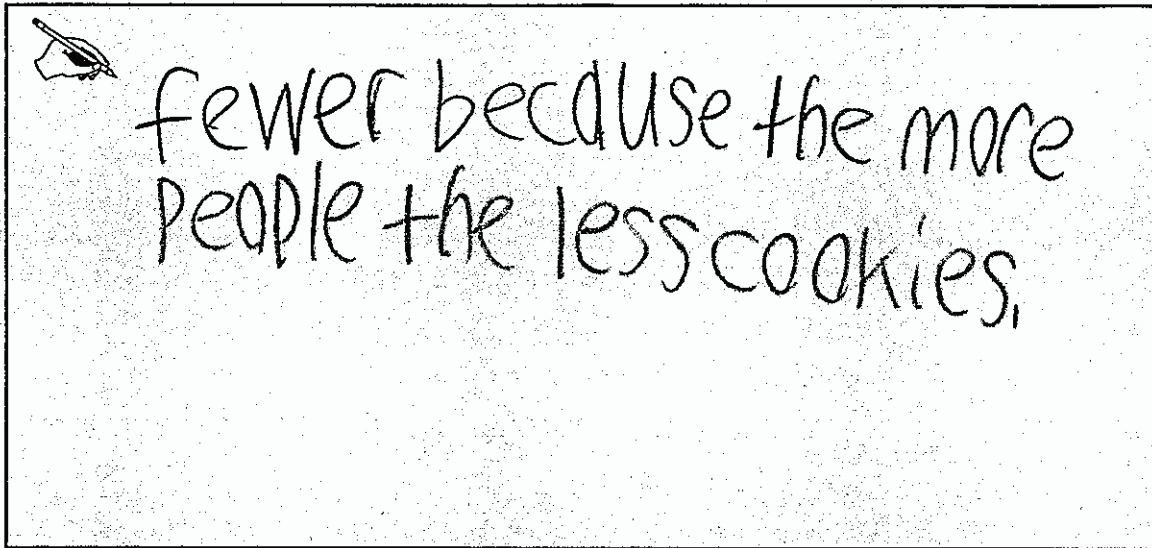 fewer because the more
people the less cookies.